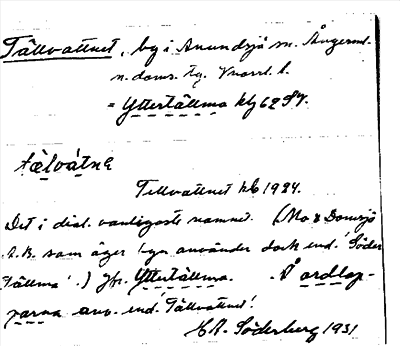 Tällvattnet, by i Anundsjö sn. Ångerml.
n. doms. tg. Vnorrl. l.
= Yttertällmo kb 62 SV.
tælvátnɛ
Tellvattnet kb 1924.
Det i dial. vanligaste namnet. (Mo & Domsjö
A.B. som äger byn använder dock end. 'Söder
Tällmo'.) Jfr. Yttertällmo. Å ordlap-
parna anv. end. 'Tällvattnet'.
K.A. Söderberg 1931